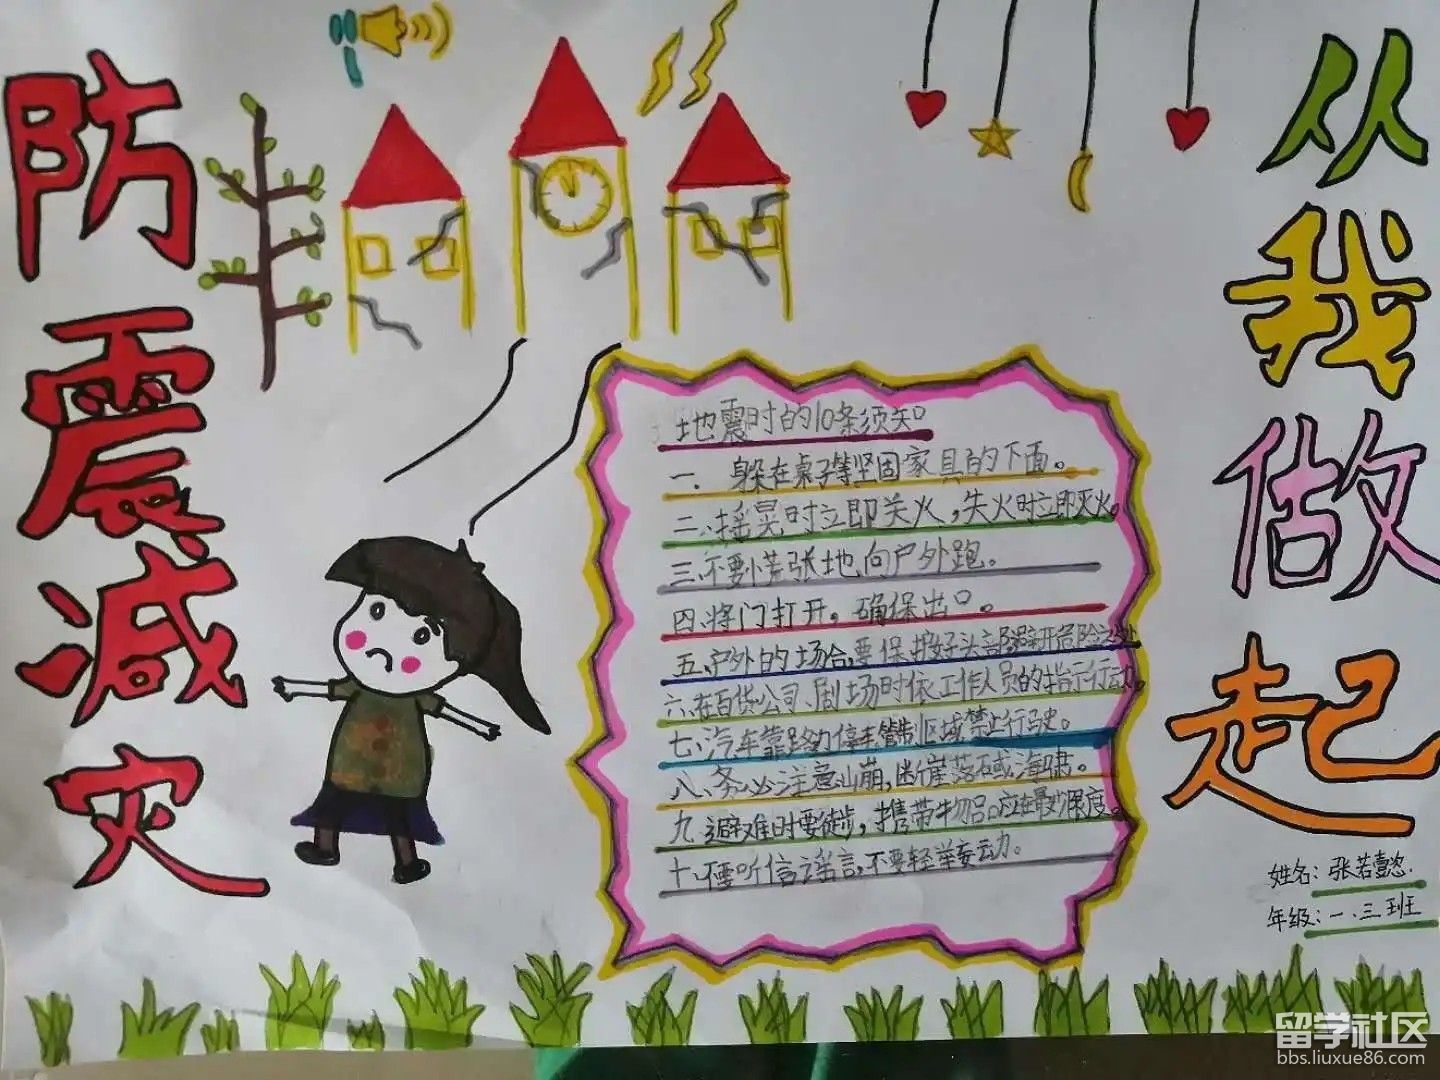 防震减灾
从我做起
地震时的10条须知
一、躲在桌子等坚固家具的下面。
二、摇晃时立即关火,失火时立即灭火。
三、不要慌张地向户外跑。
四、将门打开,确保出口。
五、户外的场合,要保护好头部,避开危险之处
六、在百货公司、剧场时依工作人员的指示行动。
七、汽车靠路边停车,管制区域禁止行驶。
八、务必注意山崩,断崖落石或海啸。
九、避难时要徒步,携带物品应在最少限度。
十、不要听信谣言,不要轻举妄动。
姓名:张若懿
年级:一.三班
留学社区
bbs.liuxue86.com